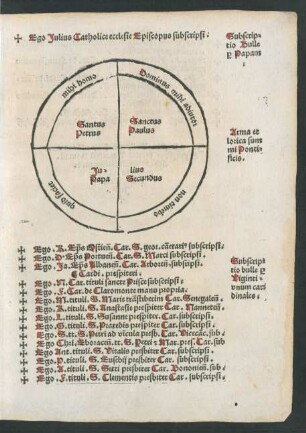 ✠ Ego Julius Catholice ecclesie Episcopus subscripsi.
Subscrip
tio Bulle
p Papam
mihi homo
Dominus mihi adiutor
non timebo
quid faciat
Santus
Petrus
Sanctus
Paulus
Ju-
Papa
lius
Secundus
Arma et
lorica sum
mi Ponti-
ficis.
✠ Ego. R. Eps Ostien. Car. S. geor. camerari9 subscripsi.
✠ Ego. D. Eps Portuen. Car. S. Marci subscripsi.
✠ Ego. Ja. Eps Albanen. Car. subscripsi.
Cardi. presbiteri
✠ Ego. N. Car. tituli sancte Prisce subscripsi.
✠ Ego. F. Car. de Claromonte manu propria.
✠ Ego. M. tituli. S. Marie presbiter Car. Senegalen.
✠ Ego. R. tituli. S. Anastasie presbiter Car. Nanneten.
✠ Ego. L. tituli. S. Susanne presbiter. Car. subscripsi.
✠ Ego. G. tituli. S. presbiter Car. subscripsi.
✠ Ego. S. tt. S. Petri ad vincula presb. Car. subscripsi.
✠ Ego Chri. tt. S. Petri z Mar. pres. Car. sub
✠ Ego Ant. tituli. S. Vitalis presbiter Car. subscripsi.
✠ Ego. P. tituli. S. Eusebij presbiter Car. subscripsi.
✠ Ego. A. tituli. S. presbiter Car. Bononien. sub.
✠ Ego. F. tituli. S. Clementis presbiter Car. subscripsi.
Subscrip
tio bulle p
Viginti
unum car
dinales.